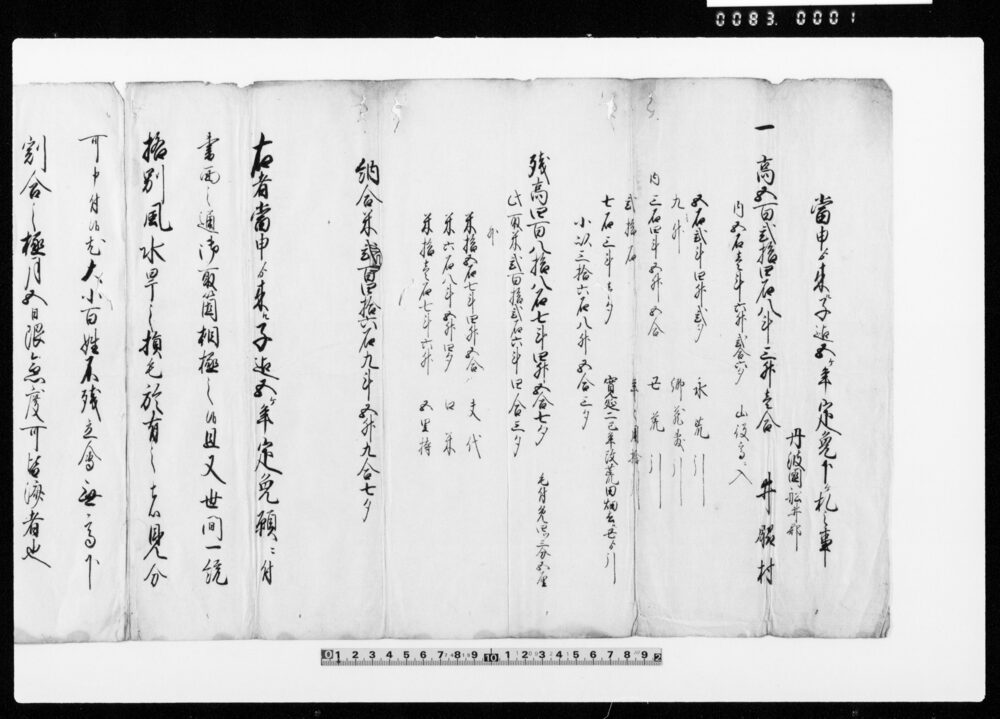 0083.0001
當申ゟ来ル子迄五ヶ年定免下ケ札之事
丹波國船井郡
一高五百弐拾四石八斗三升壱合 井尻村
内五石壱斗六升弐合六夕 山役高ニ入
五石弐斗四升弐夕 永荒引
九升 郷蔵敷引
内三石四斗五升五合 丑荒引
弐拾石
七石三斗壱夕 寛延二巳年改荒田畑
小以三拾六石八升五合三夕
残高四百八拾八石七斗四升五合七夕
此取米弐百拾弐石六斗四合三夕
外
米拾五石七斗四升五合 夫代
米六石八斗五升四夕 口米
米拾壱石七斗六升 五里持
納合米弐百四拾六石九斗五升九合七夕
右者當申ゟ来ル子迄五ヶ年定免願ニ付
書面之通御取箇相極之候且又世間一統
格別風水旱之損毛於有之者見分
可申付候尤大小百姓不残立會無高下
割合之極月五日限急度可皆済者也